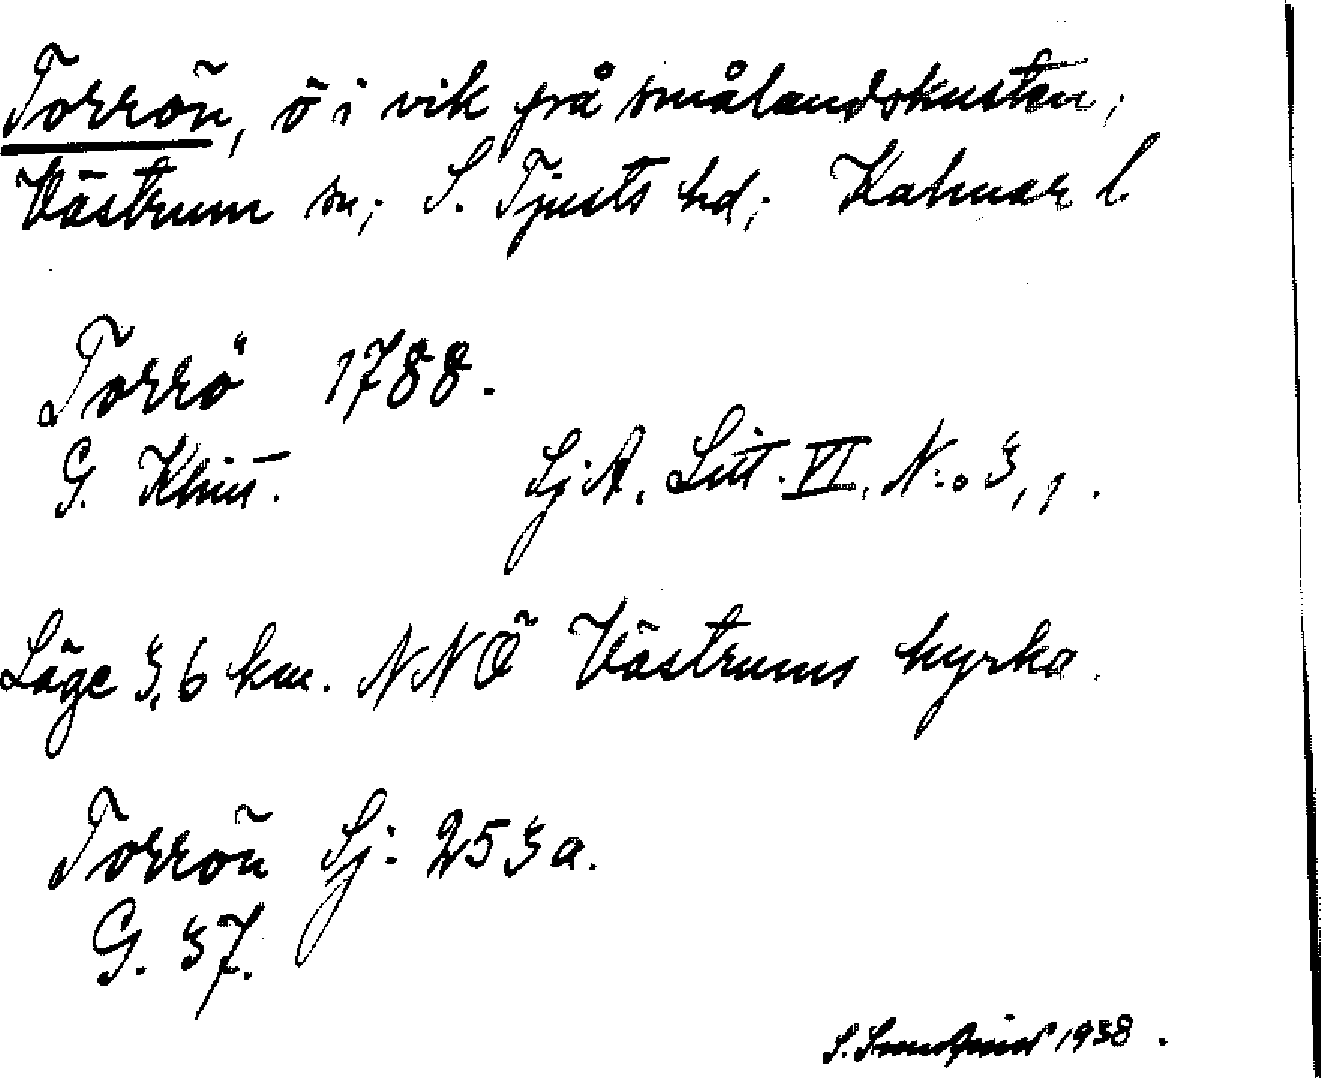 Torrön, ö i vik på smålandskusten,
Västrum sn; S. Tjusts hd; Kalmar l.
Torrö 1788.
G. Klint. SjA. Litt. VI. No. 3, 1.
Läge 3,6 km. NNÖ Västrums kyrka.
Torrön Sj: 253a.
G. 37.
S. 1938.